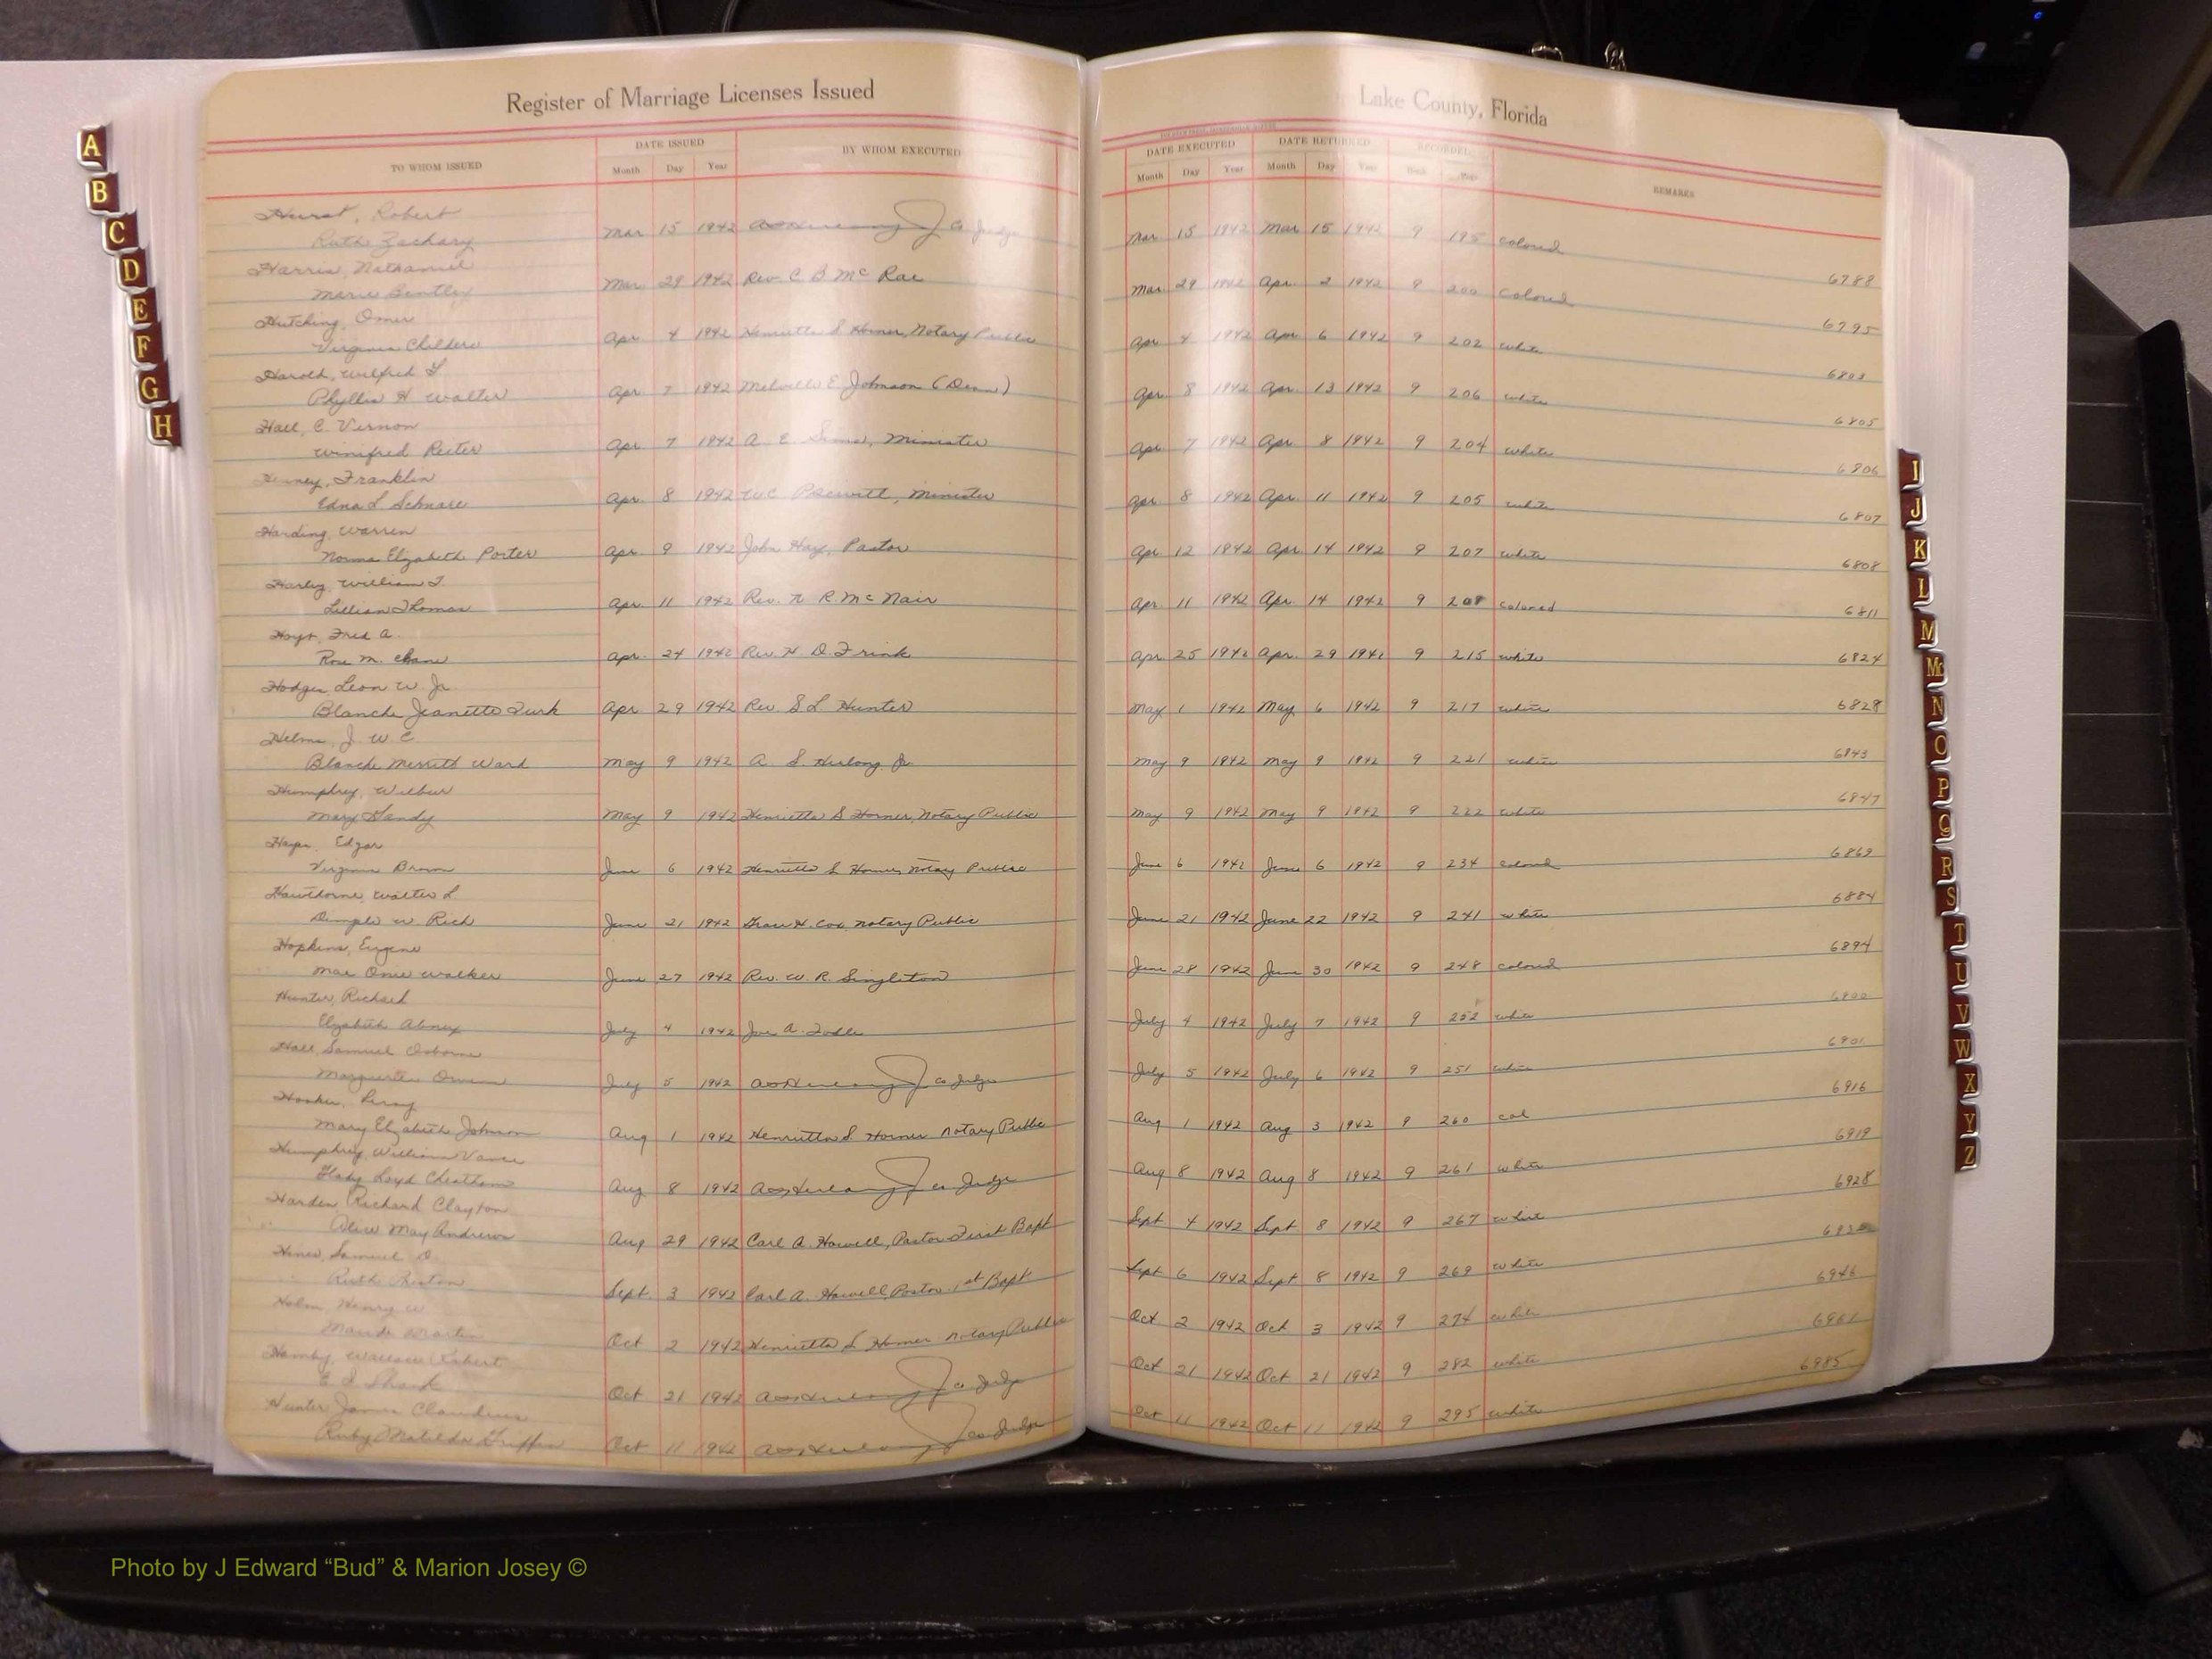 Register of Marriage Licenses Issued
Lake County, Florida
TO WHOM ISSUED
DATE ISSUED
Month Day Year
BY WHOM EXECUTED
DATE EXECUTED
Month Day Year
DATE RETURNED
Month Day Year
RECORDED
Book Page
REMARKS
Hurst, Robert
Ruth Zachary Mar 15 1942 Co Judge Mar 15 1942 Mar 15 1942 9 195 colored
6788
Harris, Nathaniel
Marie Bentley Mar. 29 1942 Rev. C B McRae Mar. 29 1942 Apr. 2 1942 9 200 Colored
6795
Hutching, Omer
Virginia Childers Apr. 4 1942 Henrietta S Horner, Notary Public Apr. 4 1942 Apr 6 1942 9 202 white
6803
Harold, Wilfred
Phyllis H Walter Apr. 7 1942 Melville E Johnson (Dean) Apr. 8 1942 Apr. 13 1942 9 206 white
6805
Hall, C. Vernon
Winifred Reeter Apr. 7 1942 A. E Sims, Minister Apr. 7 1942 Apr. 8 1942 9 204 white
6806
Franklin
Edna L Apr. 8 1942 W C Minister Apr. 8 1942 Apr. 11 1942 9 205 white
6807
Harding, Warren
Norma Elizabeth Porter Apr. 9 1942 John Hay, Pastor Apr 12 1942 Apr. 14 1942 9 207 white
6808
William
Lillian Thomas Apr. 11 1942 Rev. R. McNair Apr. 11 1942 Apr. 14 1942 9 208 Colored
6811
Hoyt, Fred A.
Rose M. Chane Apr. 24 1942 Rev. H. D. Frink Apr. 25 1942 Apr. 29 1942 9 215 white
6824
Hodges Leon W. Jr
Blanche Jeanette Turk Apr 29 1942 Rev. S L Hunter May 1 1942 May 6 1942 9 217 white
6828
Helms, J. W. C
Blanche Merritt Ward May 9 1942 A. S. Herlong, Jr. May 9 1942 May 9 1942 9 221 white
6843
Humphrey, Wilbur
Mary May 9 1942 Henrietta S Horner, Notary Public May 9 1942 May 9 1942 9 222 white
6847
Hays, Edgar
Virginia Brown June 6 1942 Henrietta S Horner, Notary Public June 6 1942 June 6 1942 9 234 colored
6863
Hawthorne, Walter L.
Dimple W. Rich June 21 1942 Grace H. Cox, Notary Public June 21 1942 June 22 1942 9 241 white
6884
Hopkins, Eugene
Mae Onie Walker June 27 1942 Rev. W. R. Singleton June 28 1942 June 30 1942 9 248 colored
6894
Hunter, Richard
Elizabeth Abney July 4 1942 Joe A. July 4 1942 July 7 1942 9 252 white
Hall, Samuel Osborne
Marguerite Owen July 5 1942 Co Judge July 5 1942 July 6 1942 9 251 white
6901
Hooker, Leroy
Mary Elizabeth Johnson Aug 1 1942 Henrietta S Horner Notary Public Aug 1 1942 Aug 3 1942 9 260 col
6916
Humphrey, William Vance
Gladys Loyd Cheatham Aug 8 1942 Co Judge Aug 8 1942 Aug 8 1942 9 261 white
6919
Harden, Richard Clayton
Alice May Andrews Aug 29 1942 Carl A. Howell, Pastor First Bapt Sept 4 1942 Sept 8 1942 9 267 white
6928
Hines, Samuel D.
Ruth Sept. 3 1942 Carl A. Howell Pastor 1st Bapt Sept 6 1942 Sept 8 1942 9 269 white
Holm Henry W
Maude Martin Oct 2 1942 Henrietta S Horner Notary Public Oct 2 1942 Oct 3 1942 9 274 white
6946
Hamby, Wallace Robert
E. I. Shank Oct 21 1942 Co Judge Oct 21 1942 Oct 21 1942 9 282 white
6961
Hunter James Claudius
Ruby Matilda Griffin Oct 11 1942 Co Judge Oct 11 1942 Oct 11 1942 9 295 white
6985
A
B
C
D
E
F
G
H
I
J
K
L
M
Mc
N
O
P
Q
R
S
T
U
V
W
X
Y
Z
Photo by J Edward “Bud” & Marion Josey ©